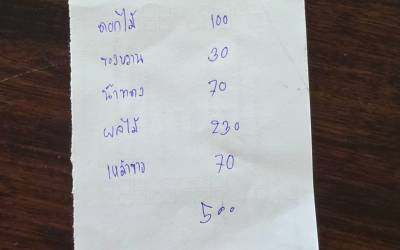 ดอกไม้ 100
ของหวาน 30
น้ำแดง 70
ผลไม้ 230
เหล้าขาว 70
500